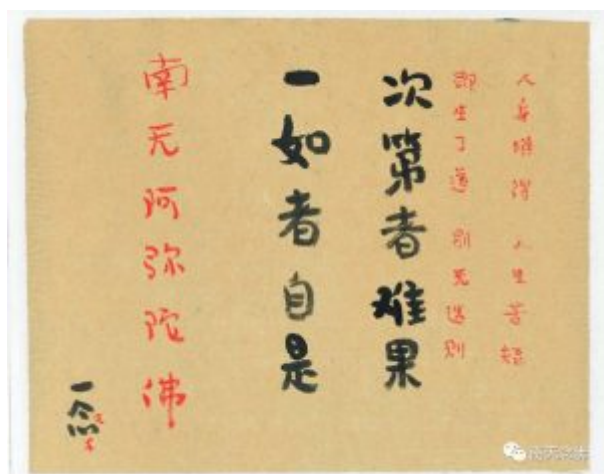 人身难得 人生苦短
即生了道 别无选则
次第者难果
一如者自是
南无阿弥陀佛
一念